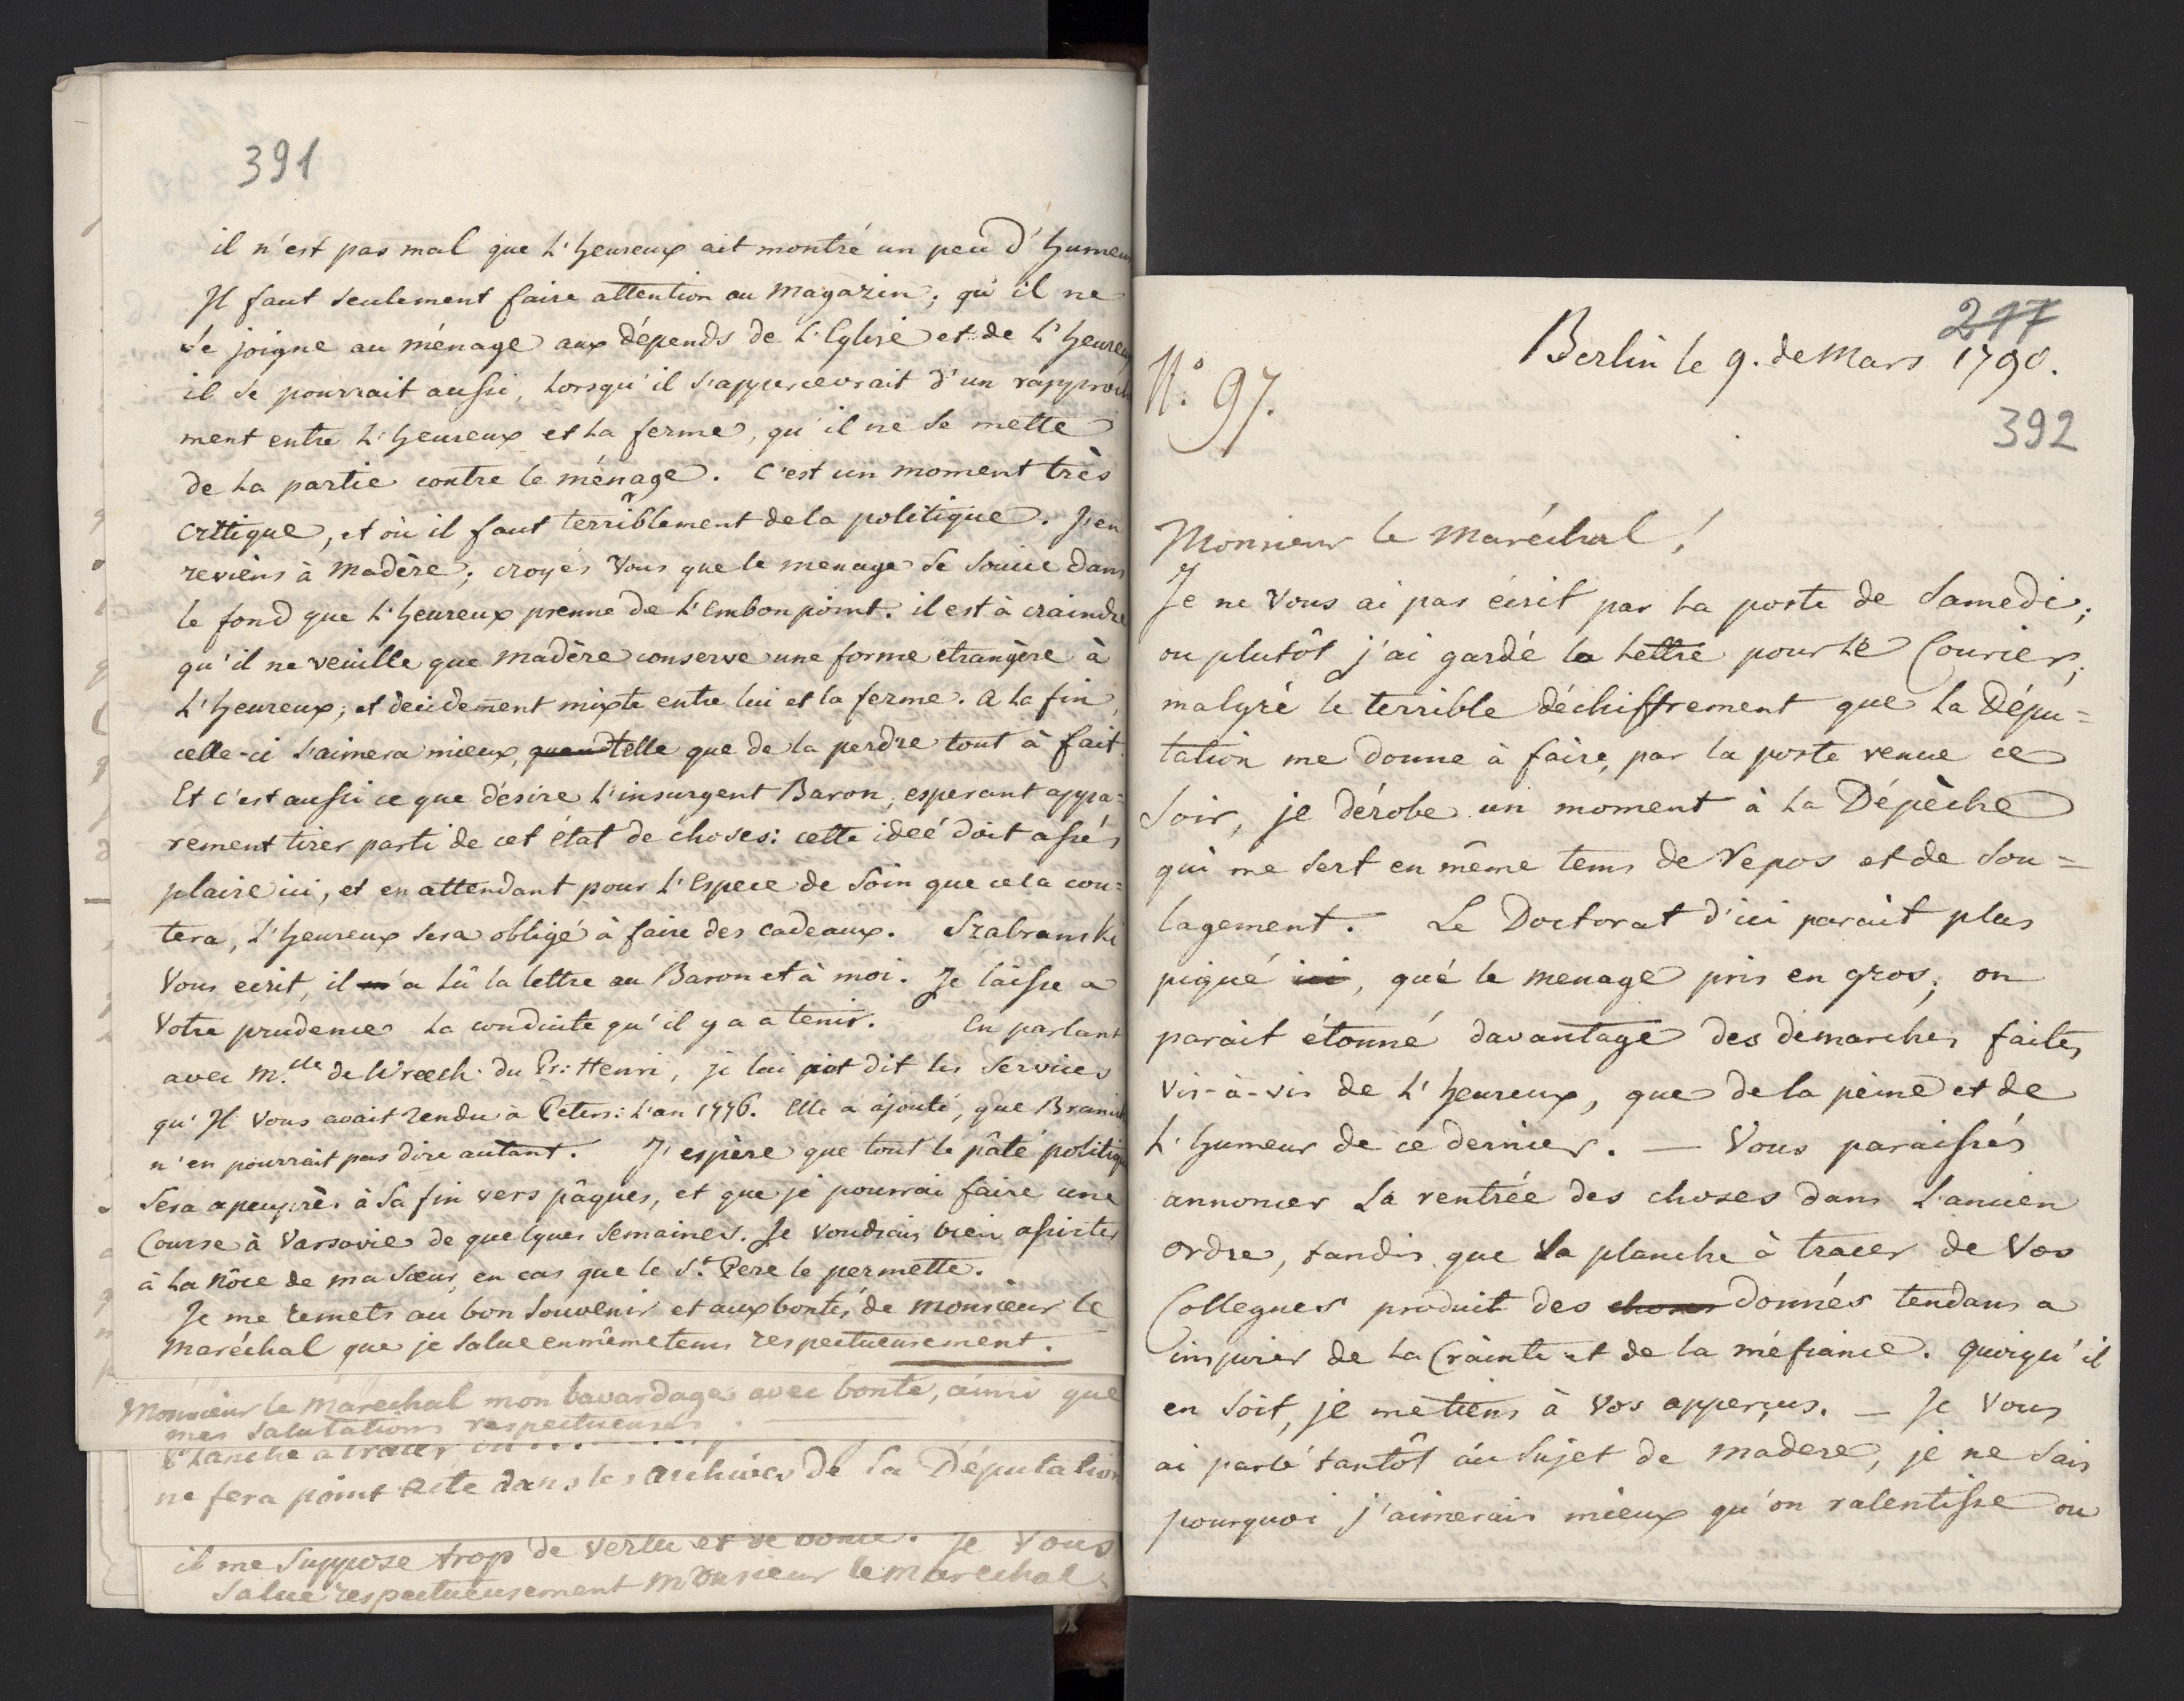 391
il n'est pas mal que L'heureux ait montré un peu d'humeu
Il faut seulement faire attention au Magazin; qu'il ne
se joigne au ménage aux dépends de L'Eglise et de L'heureux
il se pourrait aussi, Lorsqu'il s'appercevrait d'un rapproche
ment entre L'heureux et La ferme, qu'il ne se mette
de La partie contre le ménage. C'est un moment très
crttique, et où il faut terriblement de la politique. J'en
reviens à Madère; croyés Vous que le menage se soucie dans
le fond que L'heureux prenne de L'embonpoint. il est à craindre
qu'il ne veuille que Madère conserve une forme etrangère à
L'heureux; et decidement mixte entre lui et la ferme. A la fin,
celle-ci s'aimera mieux, quand telle que de la perdre tout à fait.
Et c'est aussi ce que désire L'insurgent Baron, esperant appa=
rement tirer parti de cet état de choses: cette ideé doit assés
plaire ici, et en attendant pour L'Espece de soin que cela cou=
tera, L'heureux sera obligé à faire des cadeaux. Szabranski
Vous ecrit, il m'a Lû la lettre au Baron et à moi. Je laisse a
Votre prudence La conduite qu'il y a a tenir. En parlant
avec M.lle de Wreech du Pr: Henri, je lui ai dit les services
qu'Il Vous avait rendu à Peters: L'an 1776. Elle a ajouté, que Branick
n'en pourrait pas dire autant. J'espère que tout le pâté politiqu
sera apeuprès à sa fin vers pâques, et que je pourrai faire une
Course à Varsovie de quelques semaines. Je voudrais bien assister
à La nôce de ma Sœur, en cas que le St. Pere le permette.
Je me remets au bon souvenir et aux bontés de Monsieur le
Maréchal que je salue en même tems respectueusement.
Monsieur le Marechal mon bavardage avec bonté, ainsi que
mes salutations respectueuses
Planche a tracer
ne fera point acte dans les archives de La Députation
il me suppose trop de vertu et de bonté. Je Vous
salue respectueusement Monsieur le Marechal.
217
No. 97.
Berlin le 9. de Mars 1790.
392
Monsieur le Maréchal!
Je ne Vous ai pas écrit par La poste de Samedi;
ou plutôt j'ai gardé la Lettre pour Le Courier;
malgré le terrible déchiffrement que La Dépu=
tation me donne à faire, par la poste venue ce
soir, je dérobe un moment à La Dépèche
qui me sert en même tems de repos et de sou=
lagement. Le Doctorat d'ici parait plus
piqué ici, qué le menage pris en gros; on
parait étonné davantage des demarches faites
vis-à-vis de L'heureux, que de la peine et de
L'humeur de ce dernier. — Vous paraissés
annoncer La rentrée des choses dans L'ancien
ordre, tandis que La planche à tracer de Vos
Collegues produit des choses donnés tendans a
inspirer de La Crainte et de la méfiance. Quoiqu'il
en soit, je me tiens à Vos apperçus. — Je Vous
ai parlé tantôt au sujet de Madere, je ne sais
pourquoi j'aimerais mieux qu'on ralentisse ou